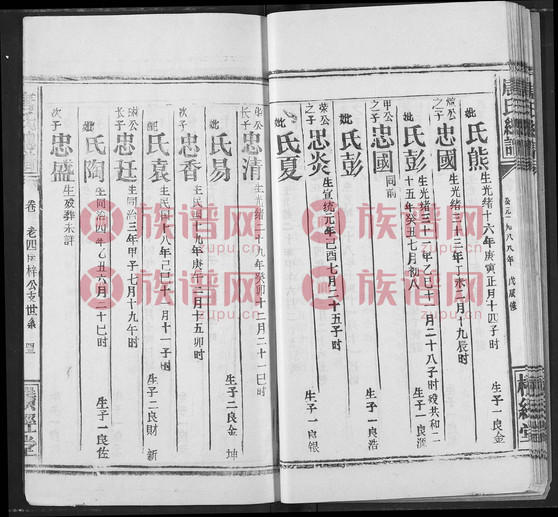 妣熊氏 生光緒十六年庚寅正月十四子时 生子一良金
忠國 生光緒三十三年丁水二月十九辰时
妣彭氏 生光緒三十一年乙巳十一月二十八子时 殁共和二十五年癸丑七月初八 生子一良滙
甲公之子 忠國 同前
妣彭氏 生子一良浩
荣公之子 忠炎 生宣統元年己酉七月二十五子时
妣夏氏 生子一良银
长子 忠清 生光緒二十九年癸卯十二月二十一巳时
妣易氏 生子二良金 坤
次子 忠香 生民国十九年庚午二月十五卯时
妣袁氏 生民国十八年己巳十一月十一子时 生子二良財 新
长子 忠廷 生同治三年甲子七月十九午时
妣陶氏 生同治四年乙丑六月二十巳时 生子一良佐
次子 忠盛 生殁葬未詳
族谱网
zupu.cn
族谱网
zupu.cn
族谱网
zupu.cn
族谱网
zupu.cn